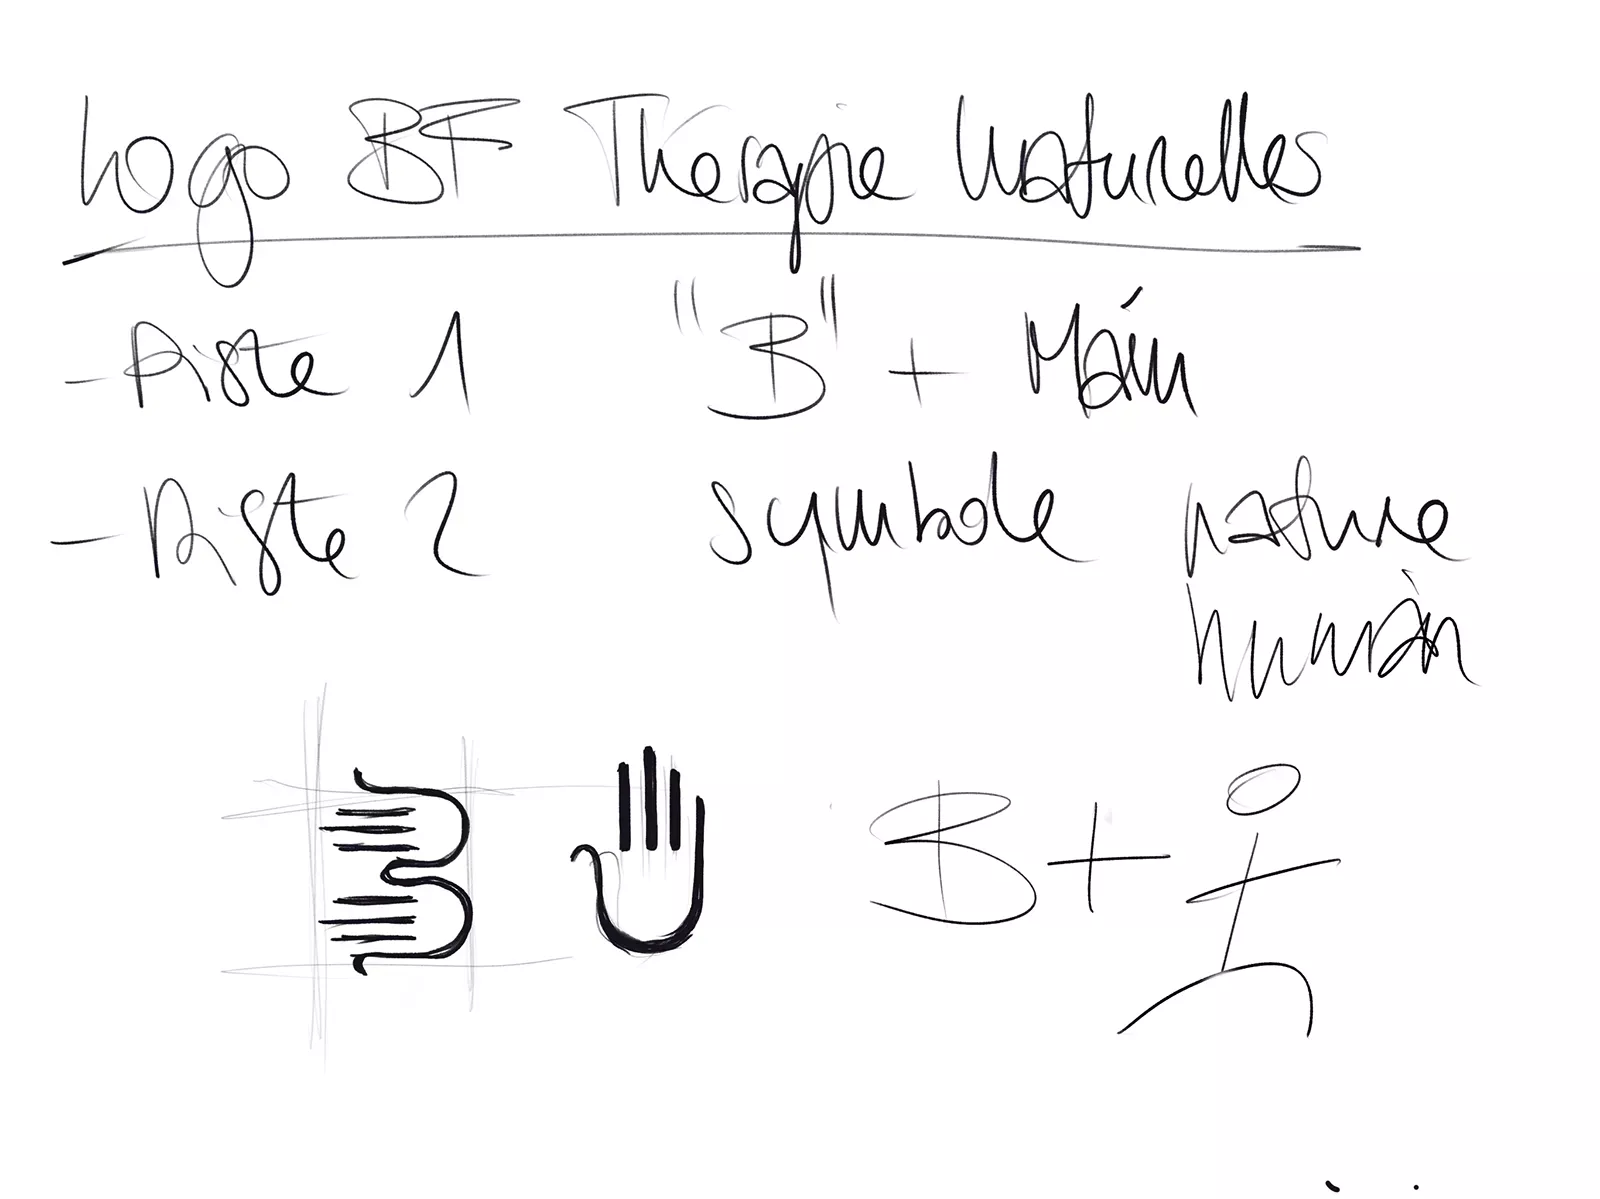 Logo BF Therapie Naturelles
- Piste 1 "B" + Main
- Piste 2 symbole nature
humain
B +